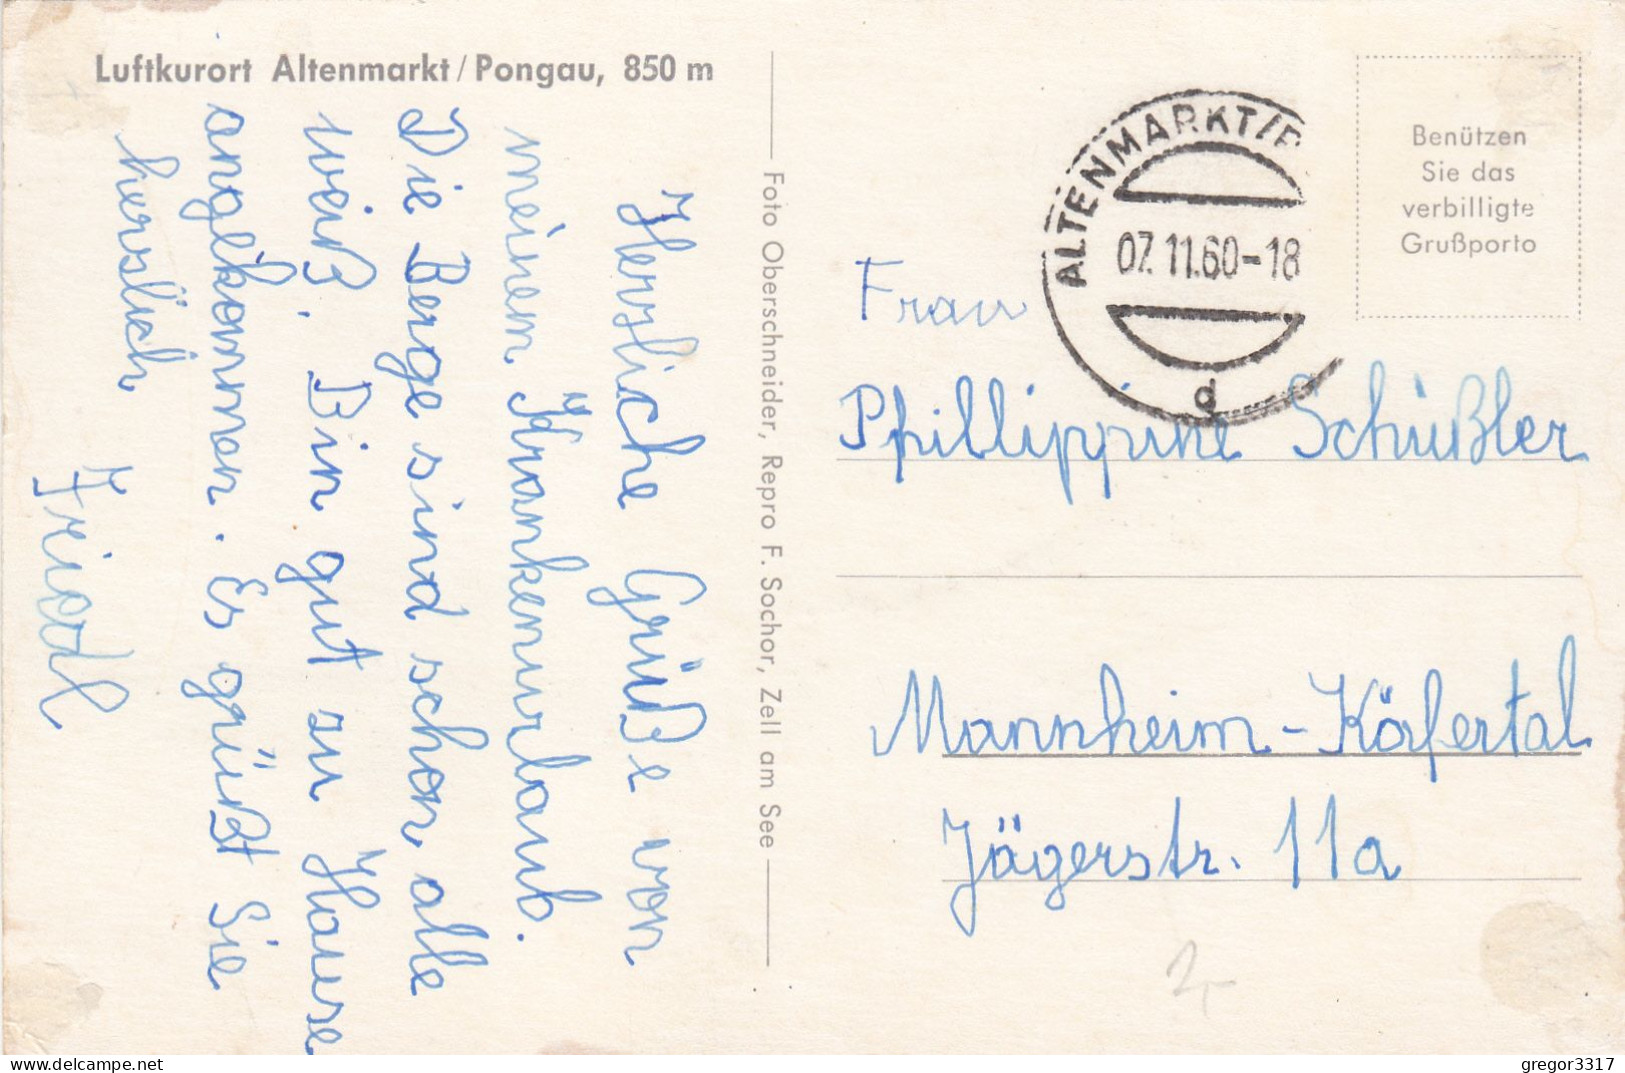 Luftkurort Altenmarkt/Pongau, 850 m
Herzliche Grüße von
meinem Krankenurlaub.
Die Berge sind schon alle
weiß. Bin gut zu Hause
angekommen. Es grüßt Sie
herzlich
Friedl
Foto Oberschneider, Repro F. Sochor, Zell am See
ALTENMARKT/P
07.11.60-18
d
Benützen
Sie das
verbilligte
Grußporto
Frau
Phillippine Schüßler
Mannheim-Käfertal
Jägerstr. 11a
2,-
www.delcampe.net
gregor3317